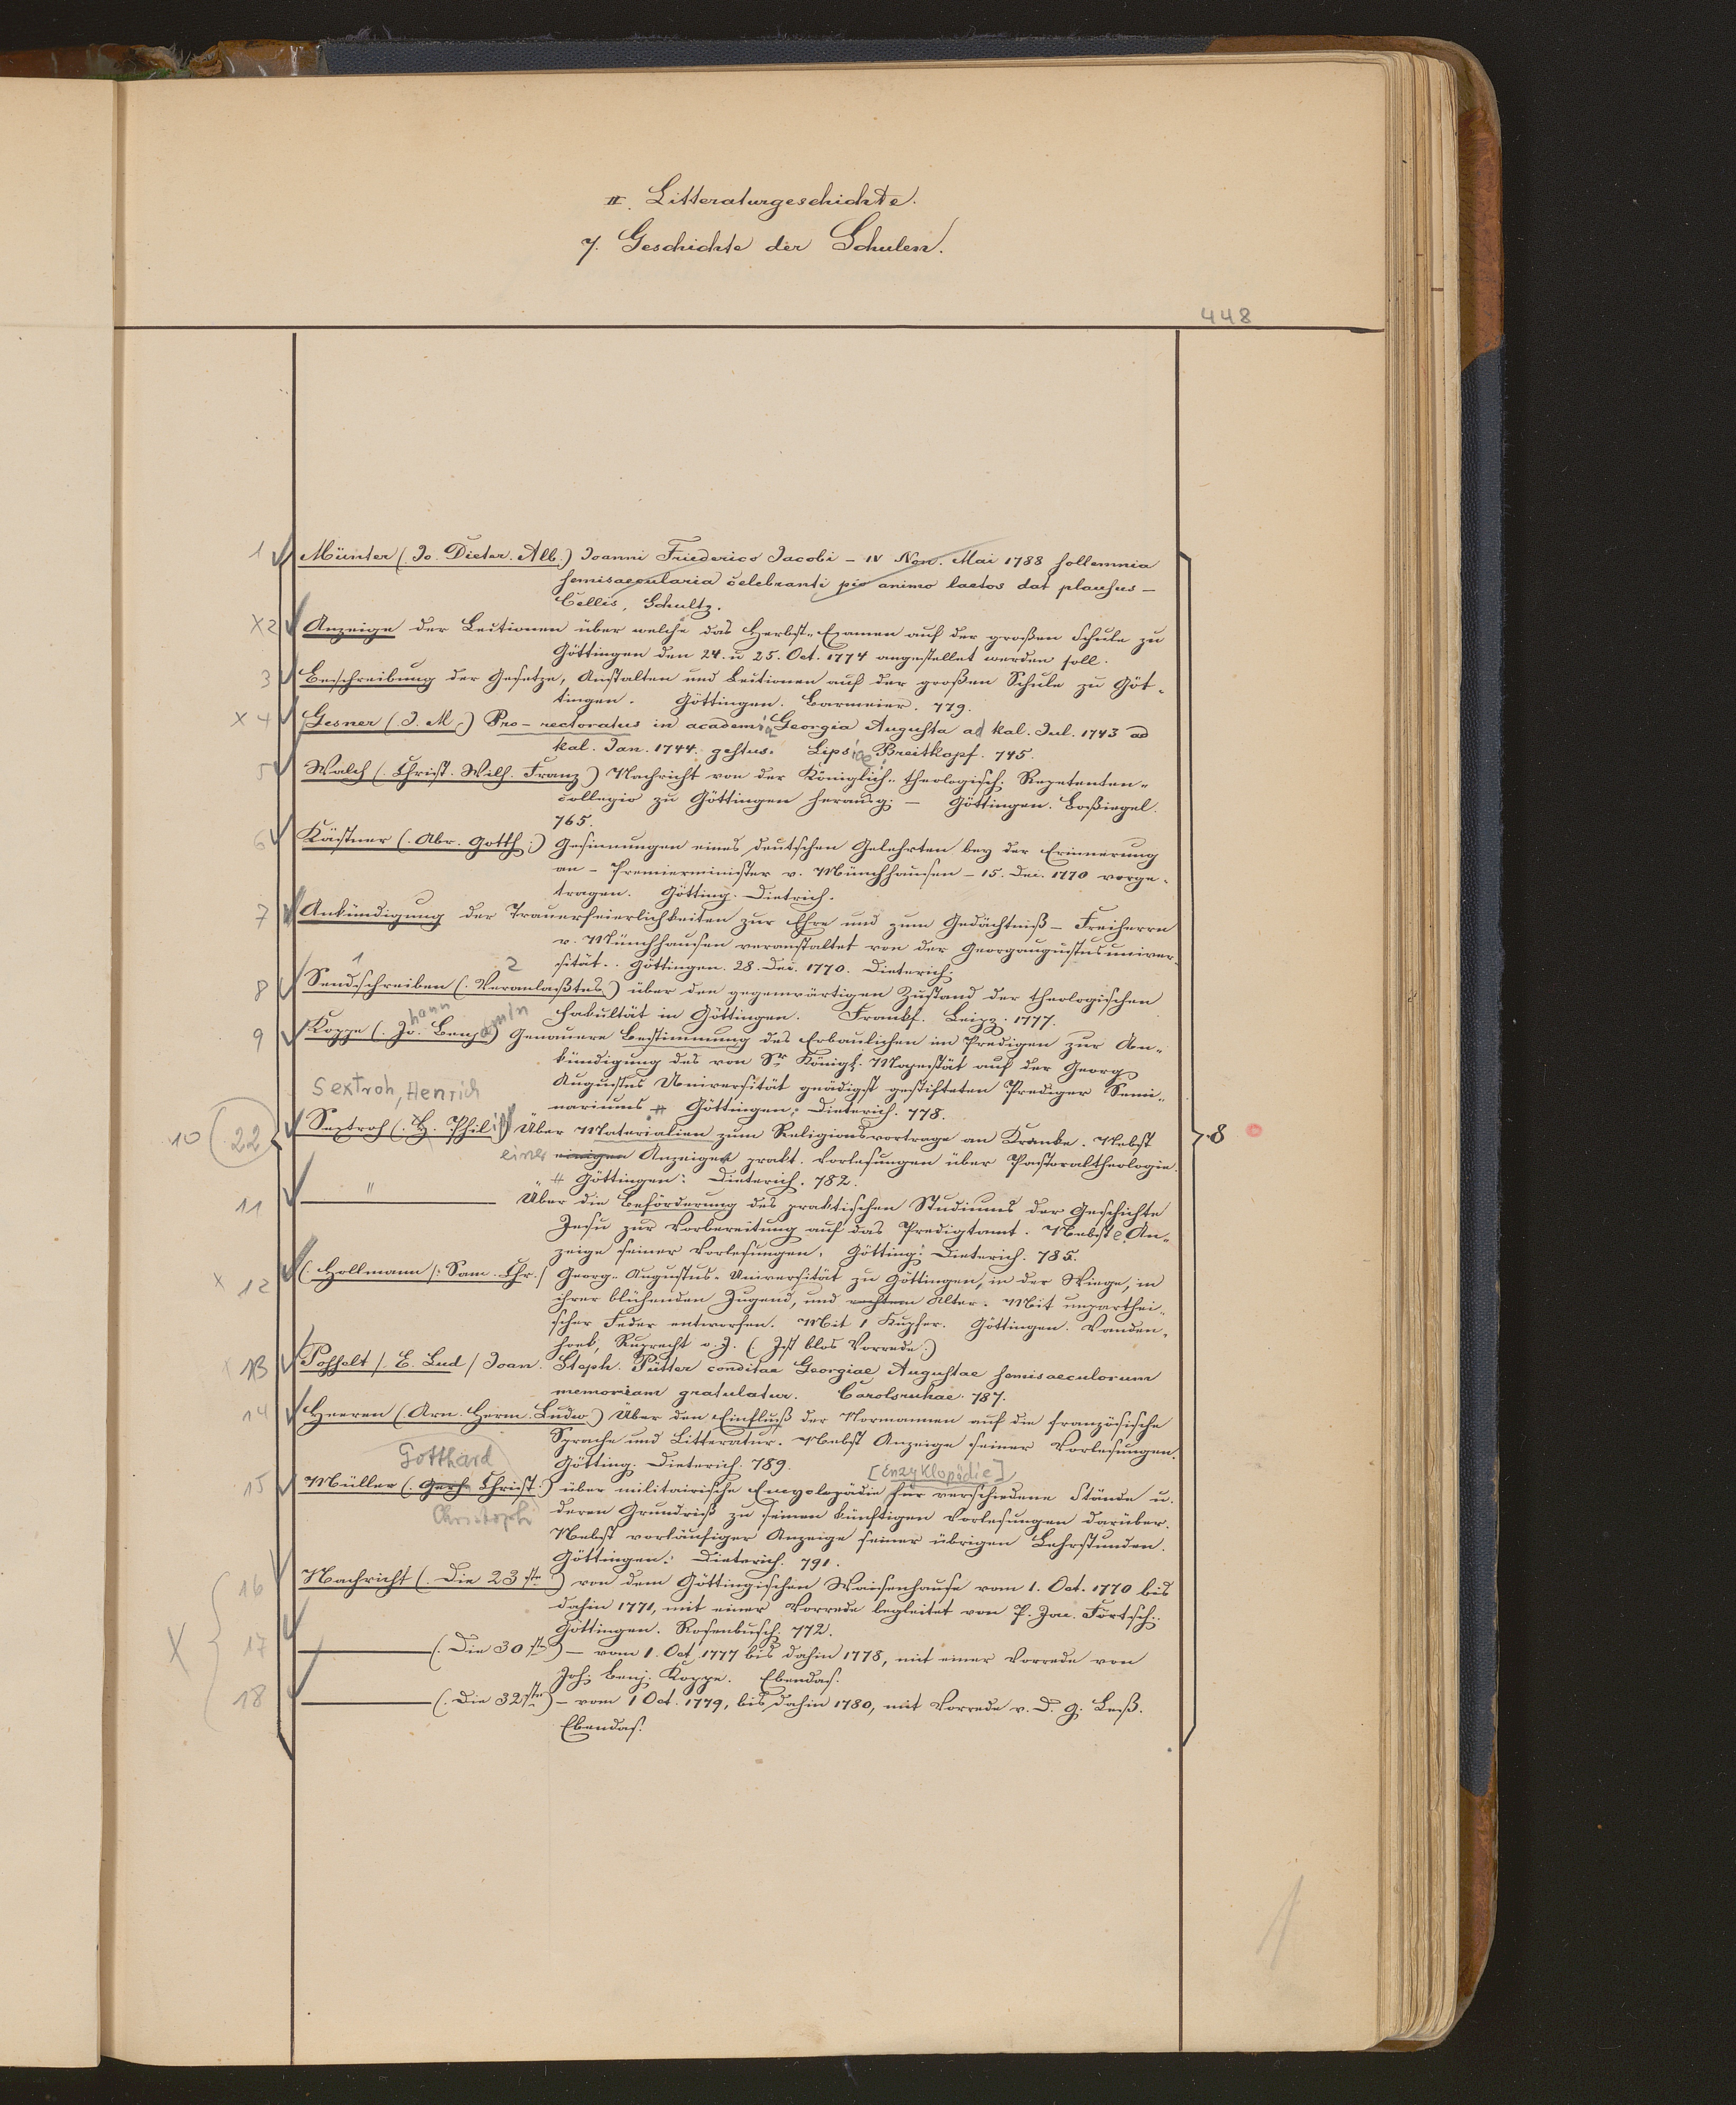 II. Litteraturgeschichte.
7. Geschichte der Schulen.
448
1 Münter (Jo. Dieter. Alb.) Joanni Friederico Jacobi – IV Non. Mai 1788 sollemnia
semisaecularia celebranti pio animo laetos dat plausus –
Cellis, Schultz.
X2 Anzeige der Lectionen über welche das Herbst-Examen auf der großen Schule zu
Göttingen den 24. u 25. Oct. 1774 angestellet werden soll.
3 Beschreibung der Gesetze, Anstalten und Lectionen auf der großen Schule zu Göt-
tingen. Göttingen. Barmeier. 779.
X 4 Gesner (J. M.) Pro-rectoratus in academia Georgia Augusta ad kal. Jul. 1743 ad
kal. Jan. 1744. gestus. Lipsiae, Breitkopf. 745.
5 Walch (Christ. Wilh. Franz) Nachricht von der Königlich-theologisch. Repetenten-
collegio zu Göttingen herausg. – Göttingen. Boßiegel.
765.
6 Kästner (Abr. Gotth.) Gesinnungen eines deutschen Gelehrten bey der Erinnerung
an – Premierminister v. Münchhausen – 15. Dec. 1770 vorge-
tragen. Götting. Dietrich.
7 Ankündigung der Trauerfeierlichkeiten zur Ehre und zum Gedächtniß – Freiherrn
v. Münchhausen veranstaltet von der Georgaugustusuniver-
sität. Göttingen. 28. Dec. 1770. Dieterich.
1 2
8 Sendschreiben (Veranlaßtes) über den gegenwärtigen Zustand der theologischen
Fakultät in Göttingen. Frankf. Leipz. 1777.
hann amin
9 Koppe (Jo. Benj.) Genauere Bestimmung des Erbaulichen im Predigen zur An-
kündigung des von Sr Königl. Majestät auf der Georg
Augustus Universität gnädigst gestifteten Prediger Semi-
nariums # Göttingen: Dieterich. 778.
Sextroh, Henrich
10 (22) Sextroh (H. Philip) Über Materialien zum Religionsvortrage an Kranke. Nebst
einer einigen Anzeigen prakt. Vorlesungen über Pastoraltheologie.
# Göttingen: Dieterich. 782.
11 " Über die Beförderung des praktischen Studiums der Geschichte
Jesu zur Vorbereitung auf das Predigtamt. Nebst e. An-
zeige seiner Vorlesungen. Götting: Dieterich. 785.
X 12 (Hollmann /: Sam. Chr./ Georg-Augustus-Universität zu Göttingen, in der Wiege, in
ihrer blühenden Jugend, und Alter. Mit unparthei-
scher Feder entworfen. Mit 1 Kupfer. Göttingen. Vanden-
hoek, Ruprecht o. J. (Ist blos Vorrede.)
X 13 Posselt /. E. Lud / Joan. Steph. Pütter conditae Georgiae Augustae semisaeculorum
memoriam gratulatur. Carolsruhae. 787.
14 Heeren (Arn. Herm. Ludw.) Über den Einfluß der Normannen auf die französische
Sprache und Litteratur. Nebst Anzeige seiner Vorlesungen.
Götting. Dieterich. 789.
Gotthard
[Enzyklopädie]
15 Müller (Gerh. Christ.) über militairische Encyclopädie für verschiedene Stände u.
Christoph
deren Grundriß zu seinen künftigen Vorlesungen darüber.
Nebst vorläufiger Anzeige seiner übrigen Lehrstunden.
Göttingen: Dieterich. 791.
16 Nachricht (Die 23ste) von dem Göttingischen Waisenhause vom 1. Oct. 1770 bis
dahin 1771, mit einer Vorrede begleitet von P. Jac. Förtsch.
Göttingen. Rosenbusch. 772.
X 17 (Die 30ste) – vom 1. Oct. 1777 bis dahin 1778, mit einer Vorrede von
Joh. Benj. Koppe. Ebendas.
18 (Die 32ste) – vom 1 Oct. 1779, bis dahin 1780, mit Vorrede v. D. G. Leß.
Ebendas.
8